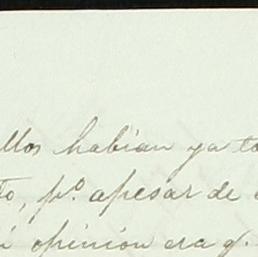 ellos habían ya to
to, p.º apesar de
opinion era q.